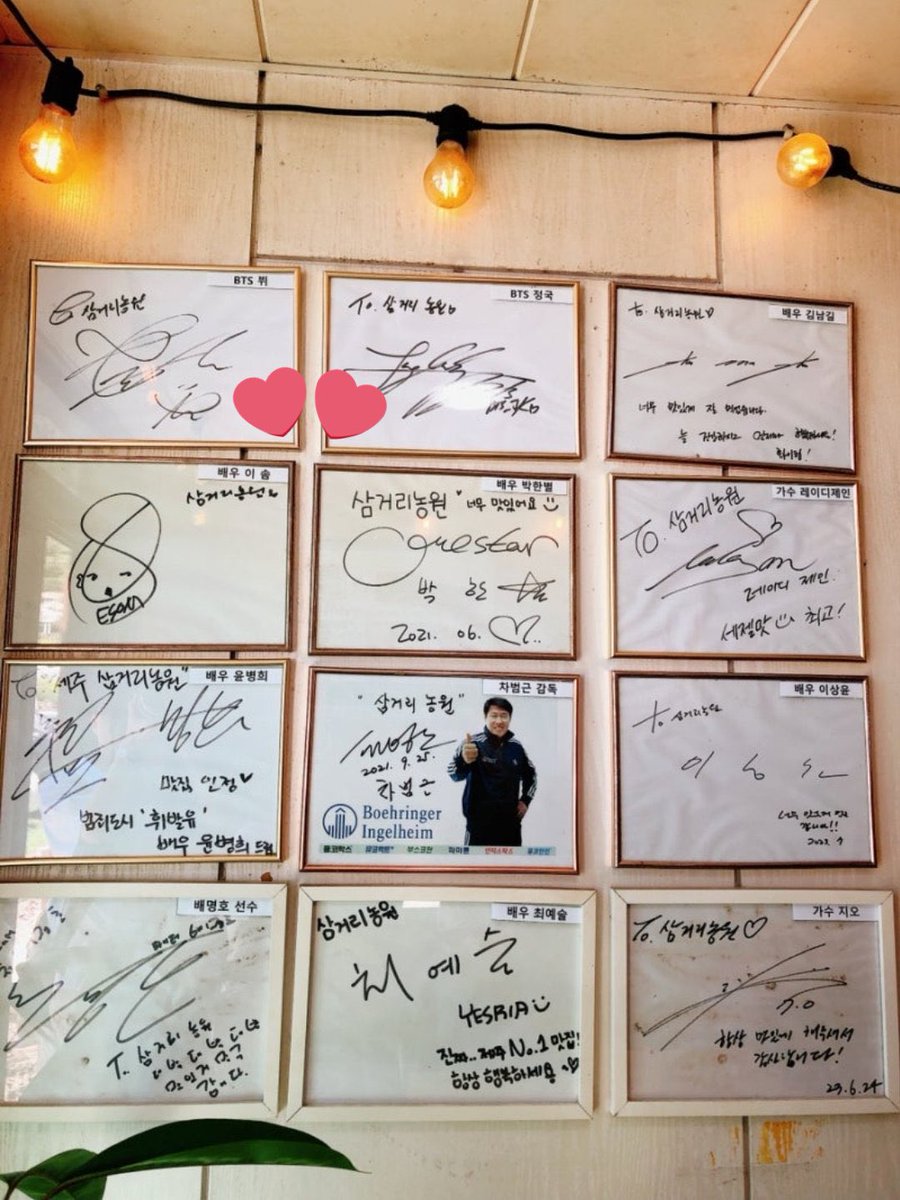 BTS 뷔
삼거리농원
BTS 정국
To. 삼거리 농원
배우 김남길
to. 삼거리농원♡
너무 맛있게 잘 먹었습니다.
배우 이 솜
삼거리농원
ESOM
배우 박한별
삼거리농원 "너무 맛있어요
Onestar
박 한 별
2021. 06.
가수 레이디제인
To. 삼거리농원
레이디 제인.
세젤맛 최고!
배우 윤병희
To "제주 삼거리농원"
맛집 인정♥
빌런도시 '휘발유'
배우 윤병희 드림
차범근 감독
"삼거리 농원"
2021. 9. 25.
차범근
Boehringer
Ingelheim
둘코락스
부스코판
파마톤
배우 이상윤
to 삼거리농원
이 상 윤
배명호 선수
T. 삼거리 농원
맛있게 먹고
갑니다.
배우 최예슬
삼거리농원
최 예 슬
YESRIA
진짜.. 제주 No.1 맛집!
항상 행복하세용
가수 지오
To. 삼거리농원♡
G.O
항상 맛있게 해주셔서
감사합니다!
23.6.24